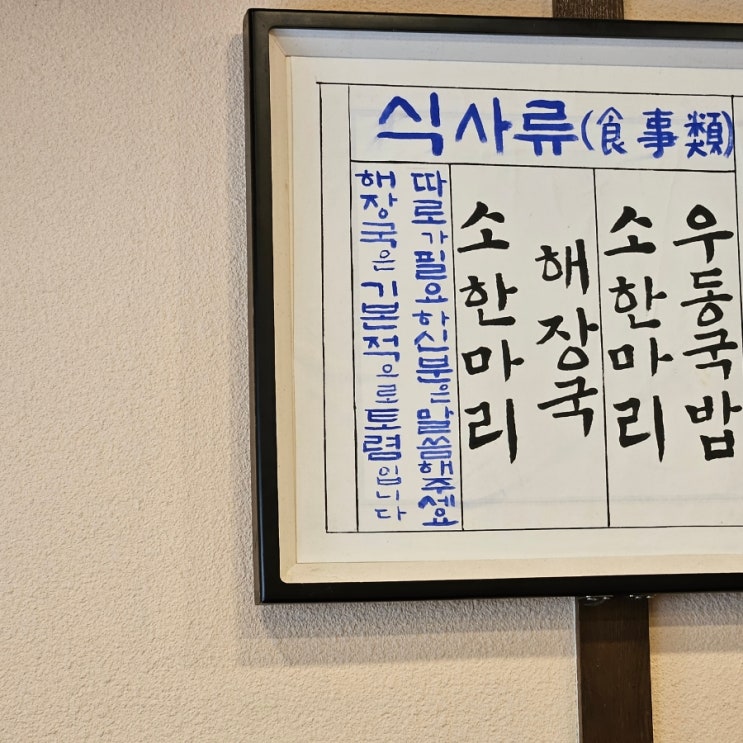 식사류(食事類)
해장국은 기본적으로 토렴입니다
따로가 필요하신분은 말씀해주세요
소한마리
해장국
소한마리
우동국밥